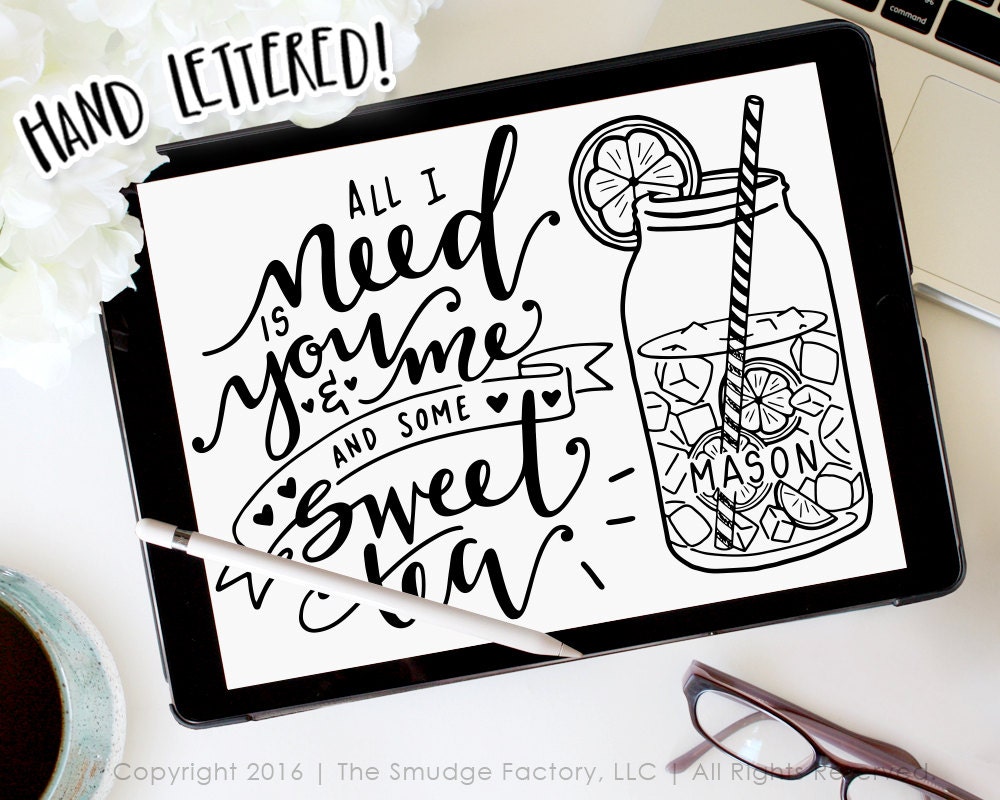 HAND LETTERED!
ALL I
need
IS
you & me
AND SOME
sweet
tea
MASON
command
Copyright 2016 | The Smudge Factory, LLC | All Rights Reserved.